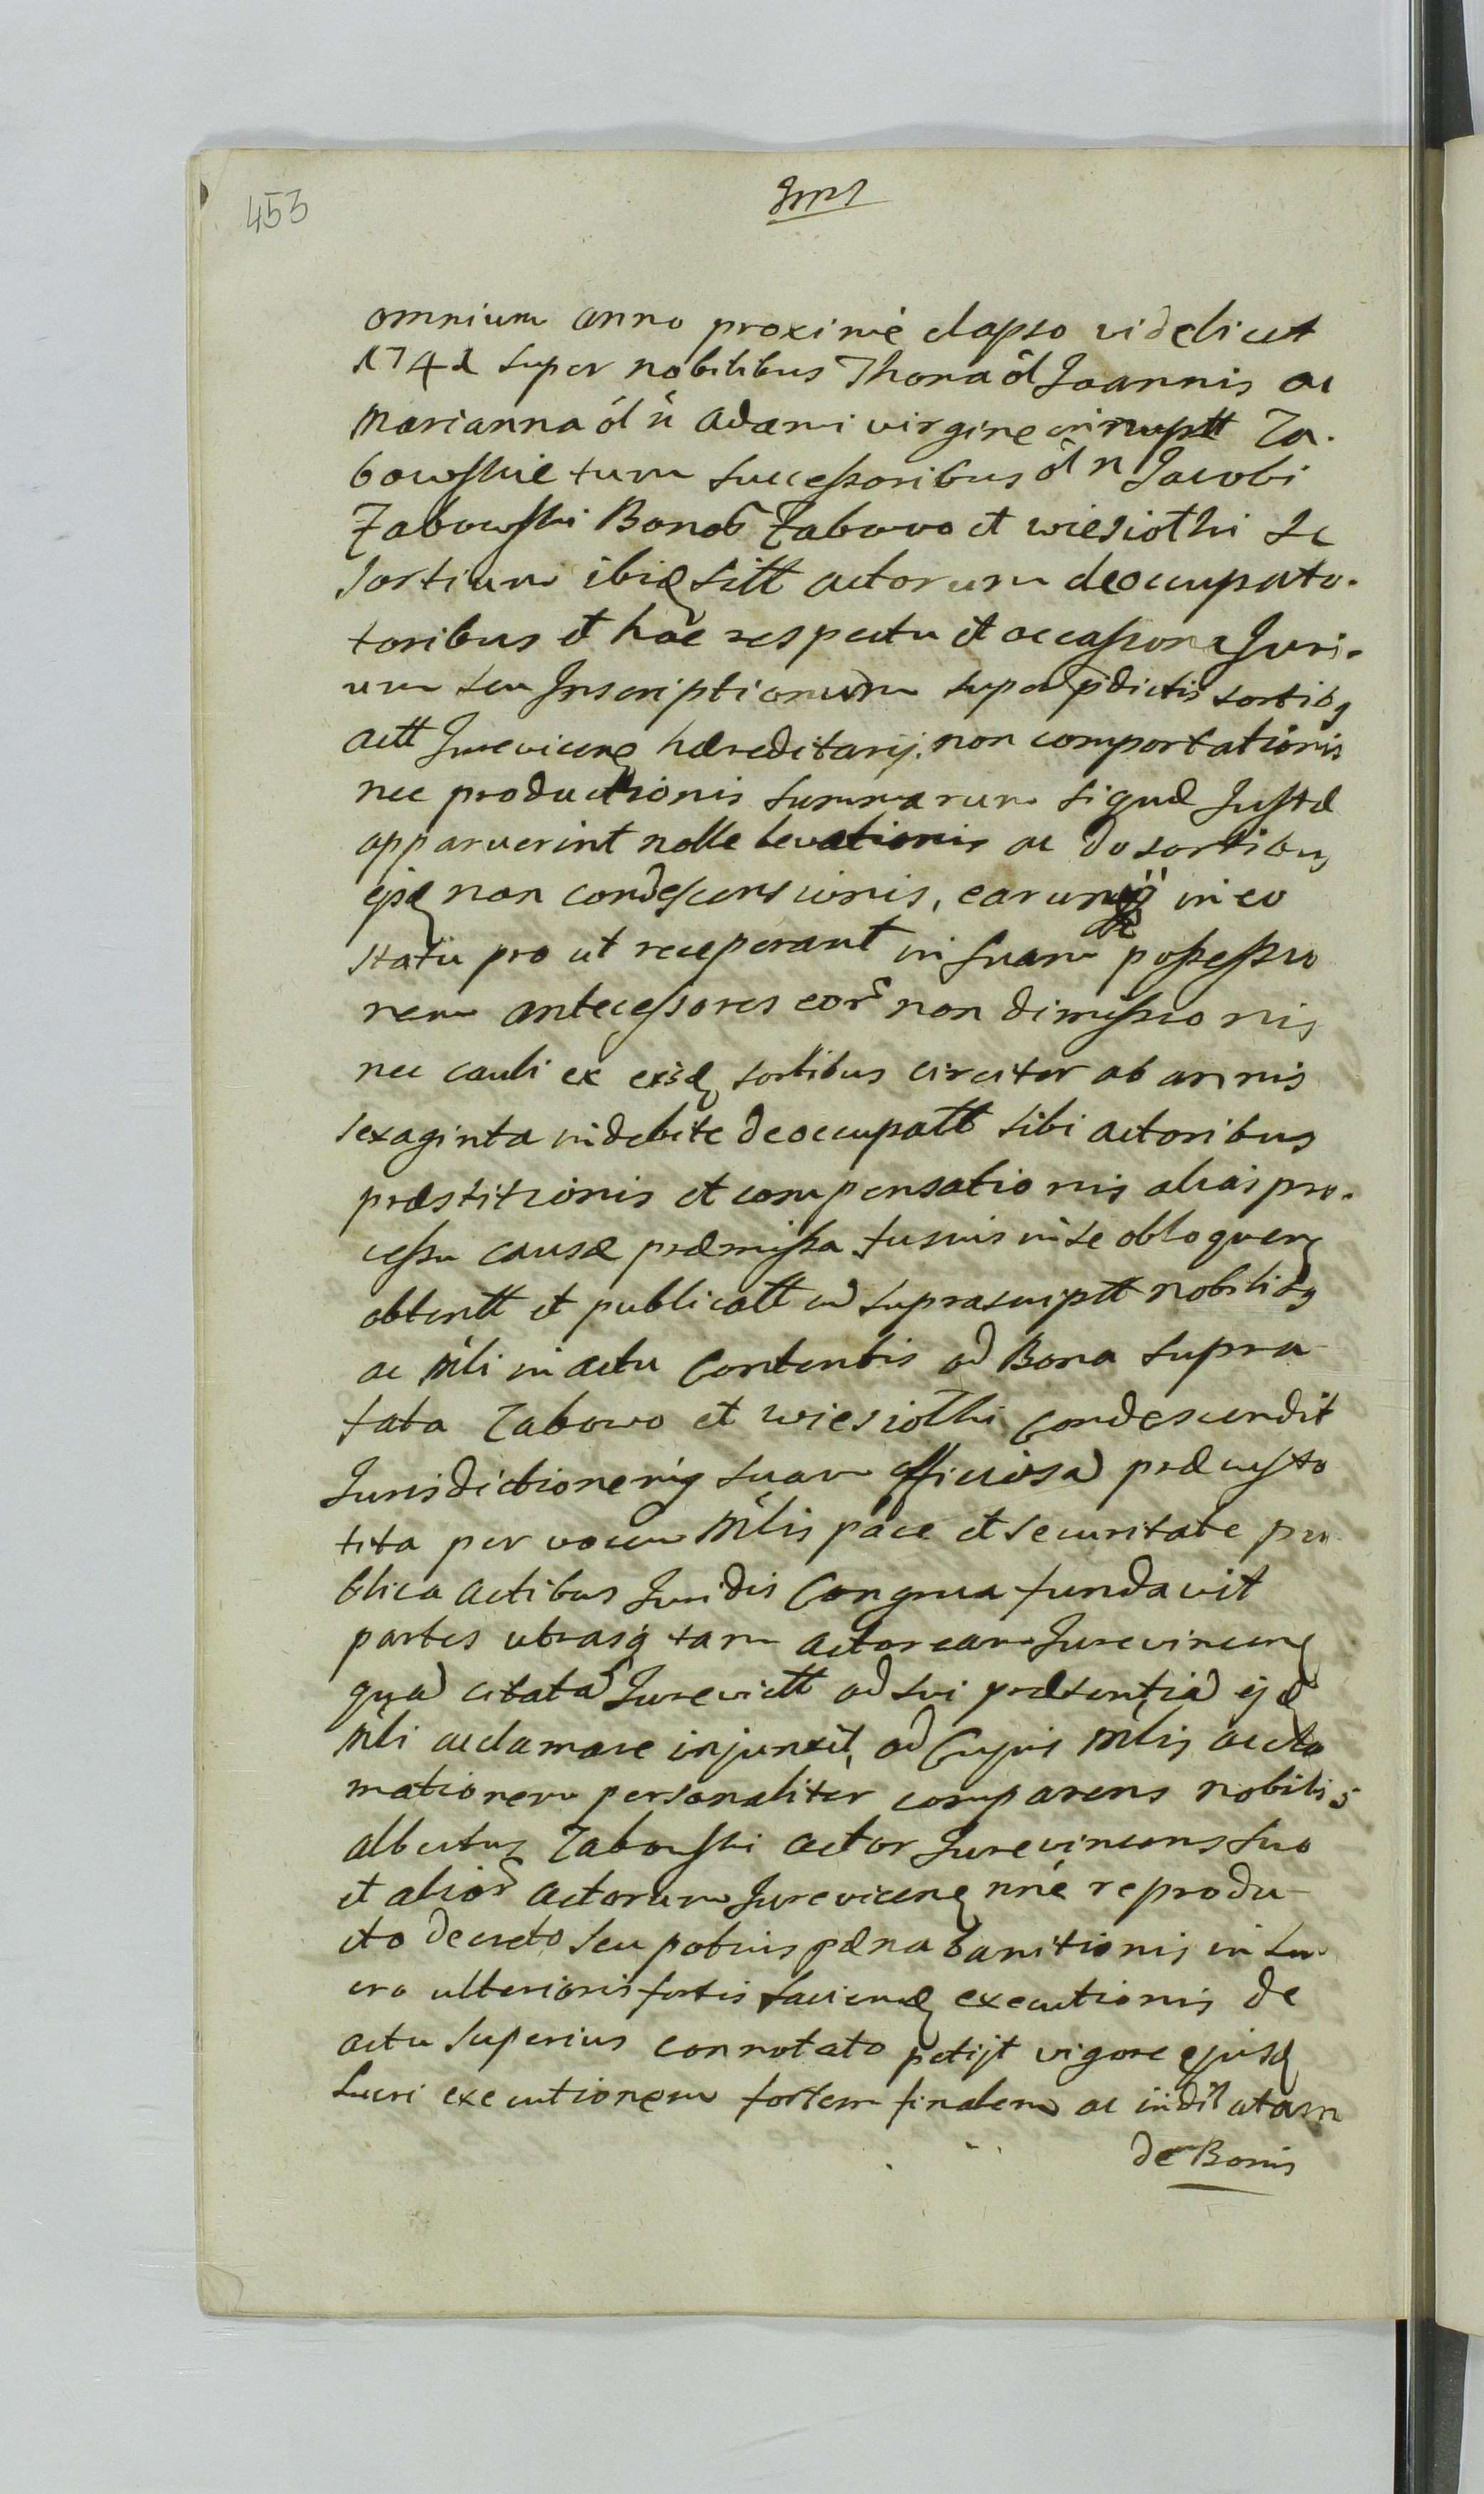 453
omnium anno proxime elapso videlicet
1741 super nobilibus Thoma ól Joannis ac
Marianna ól ń Adami virgine innuptt Za-
bowskie tum successoribus ól n Jacobi
Zabowski Bonor Zabowo et wiesiołki se
sortium ibiq sitt actorum deoccupato-
toribus et hac respectu et occassione Juri-
um seu Inscriptionum super pdictis sortibq
actt Jurevicenę haereditarij non comportationis
nec productionis summarum siquae Justae
apparuerint nolle levationis ac de sortibus
ijsdę non condescensionis, earumq in eo
statu pro ut receperant in suam possessio
nem antecessores eor non dimissionis
nec causi ex eisdę sortibus circiter ab annis
sexaginta indebite deoccupatt sibi actoribus
praestitionis et compensationis alias pro-
cessu causae praemissa fusius in se obloquenę
obtentt et publicatt cu suprascriptt nobilibq
ac Mli in actu Contentis ad Bona supra
fata Zabowo et wiesiołki condescendit
Jurisdictionemq suam officiosa praecusto
tita per vocem Mlis pace et securitate pu
blica actibus Juridis Congrua fundavit
partes utrasq tam actoream Jurevincenę
qua citata Jurevictt ad sui praesentia ejdę
Mli acclamare injunxit, ad Cujus Mlis accla
mationem personaliter comparens nobilis
albertus Zabowski actor Jurevincens suo
et alior actorum Jurevicenę nne reprodu-
cto decreto seu potius paena banitionis in lu
cro ulterioris fortis faciendę executionis de
actu superius connotato petijt vigore ejusdę
lucri executionem fortem finalem ac indilatam
de Bonis